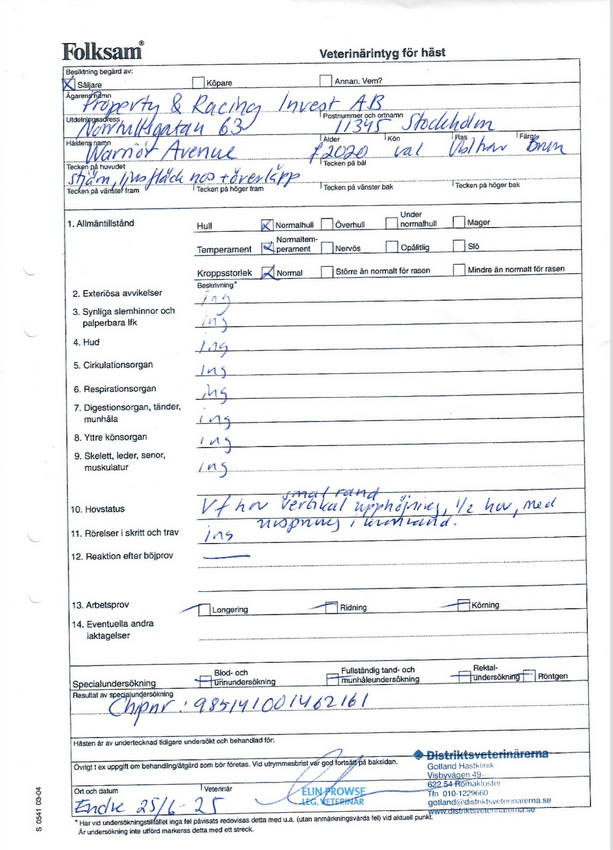 Folksam®
Veterinärintyg för häst
Besiktning begärd av:
Säljare Köpare Annan. Vem?
Ägarens namn
Property & Racing Invest AB
Utdelningsadress Postnummer och ortnamn
Norrtullsgatan 63 11345 Stockholm
Hästens namn Ålder Kön Ras Färg
Warrior Avenue f 2020 val Vbl hav Brun
Tecken på huvudet Tecken på bål
stjärn, ljus fläck nos + överläpp
Tecken på vänster fram Tecken på höger fram Tecken på vänster bak Tecken på höger bak
1. Allmäntillstånd Hull Normalhull Överhull Under normalhull Mager
Temperament Normaltemperament Nervös Opålitlig Slö
Kroppsstorlek Normal Större än normalt för rasen Mindre än normalt för rasen
Beskrivning*
2. Exteriösa avvikelser ing
3. Synliga slemhinnor och
palperbara lfk ing
4. Hud ing
5. Cirkulationsorgan ing
6. Respirationsorgan ing
7. Digestionsorgan, tänder,
munhåla ing
8. Yttre könsorgan ing
9. Skelett, leder, senor,
muskulatur ing
smal rand
10. Hovstatus Vf hov vertikal upphöjning, 1/2 hov, med
ursprung i kronrand.
11. Rörelser i skritt och trav ing
12. Reaktion efter böjprov
13. Arbetsprov Longering Ridning Körning
14. Eventuella andra
iakttagelser
Specialundersökning Blod- och urinundersökning Fullständig tand- och munhåleundersökning Rektalundersökning Röntgen
Resultat av specialundersökning
Chipnr: 985141001462161
Hästen är av undertecknad tidigare undersökt och behandlad för:
Övrigt t ex uppgift om behandling/åtgärd som bör företas. Vid utrymmesbrist var god fortsätt på baksidan.
Distriktsveterinärerna
Gotland Hästklinik
Visbyvägen 49
622 54 Romakloster
Tfn 010-1229660
gotland@distriktsveterinarerna.se
www.distriktsveterinarerna.se
Ort och datum Veterinär
Endre 25/6-25
ELIN PROWSE
LEG. VETERINÄR
* Har vid undersökningstillfället inga fel påvisats redovisas detta med u.a. (utan anmärkningsvärda fel) vid aktuell punkt.
Är undersökning inte utförd markeras detta med ett streck.
S 0541 03-04